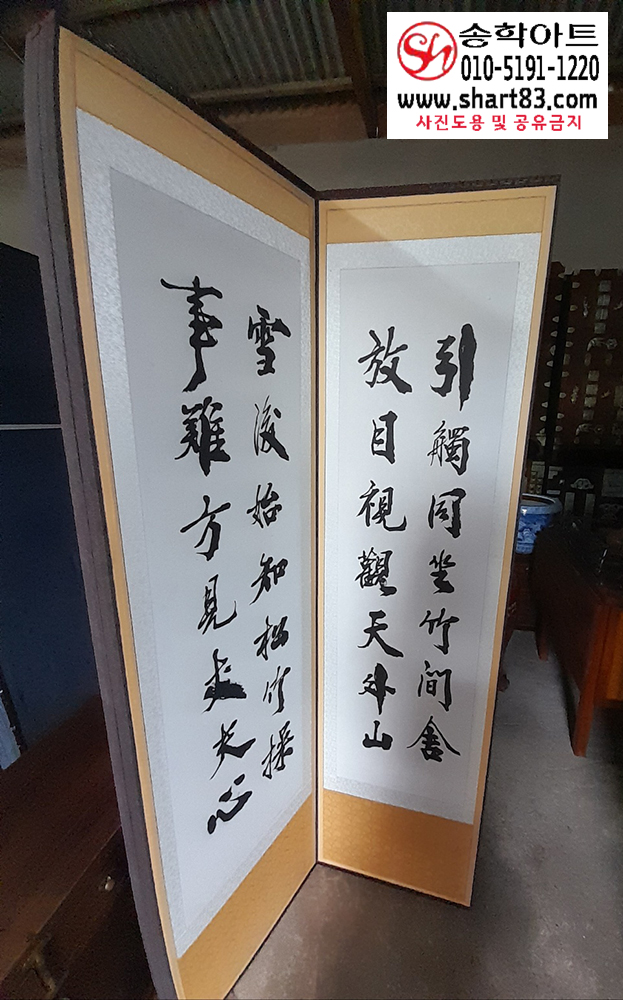 Sh 송학아트
010-5191-1220
www.shart83.com
사진도용 및 공유금지
引觴同坐竹間舍
放目視觀天外山
雪後始知松竹操
事難方見丈夫心